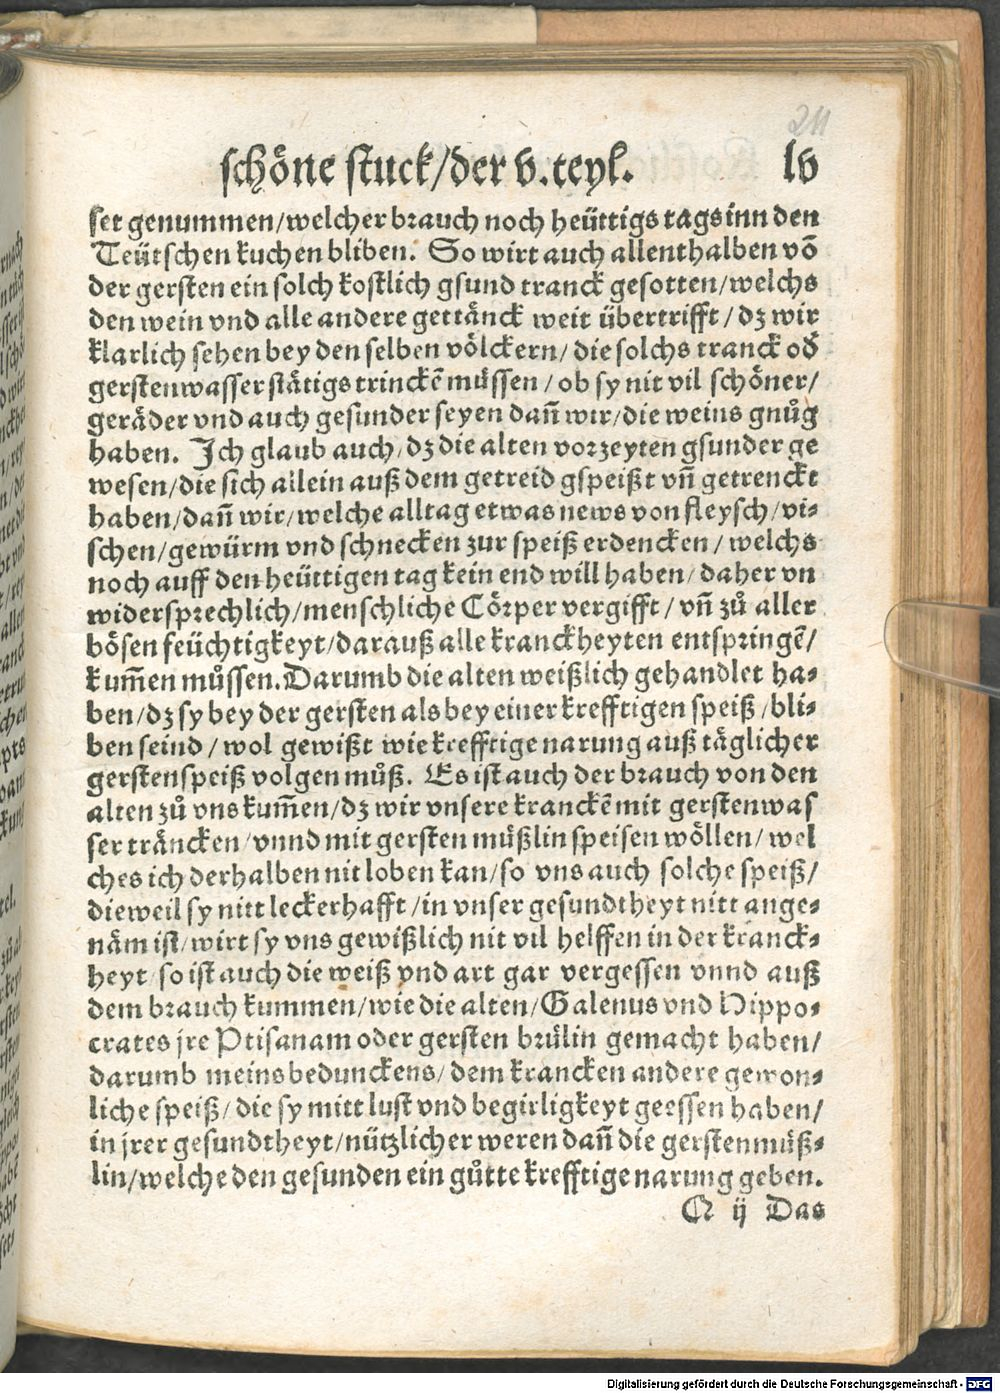 211
schöne stuck/der v.teyl. lv
set genummen/welcher brauch noch heüttigs tags inn den
Teütschen kuchen bliben. So wirt auch allenthalben võ
der gersten ein solch kostlich gsund tranck gesotten/welchs
den wein vnd alle andere getränck weit übertrifft/dz wir
klarlich sehen bey den selben völckern/die solchs tranck oď
gerstenwasser stätigs trinckẽ müssen/ob sy nit vil schöner/
geräder vnd auch gesunder seyen dañ wir/die weins gnůg
haben. Ich glaub auch/dz die alten vorzeyten gsunder ge
wesen/die sich allein auß dem getreid gspeißt vñ getrenckt
haben/dañ wir/welche alltag etwas news von fleysch/vi-
schen/gewürm vnd schnecken zur speiß erdencken/welchs
noch auff den heüttigen tag kein end will haben/daher vn
widersprechlich/menschliche Cörper vergifft/vñ zů aller
bösen feüchtigkeyt/darauß alle kranckheyten entspringẽ/
kum̃en můssen. Darumb die alten weißlich gehandlet ha-
ben/dz sy bey der gersten als bey einer krefftigen speiß/bli-
ben seind/wol gewißt wie krefftige narung auß täglicher
gerstenspeiß volgen můß. Es ist auch der brauch von den
alten zů vns kum̃en/dz wir vnsere kranckẽ mit gerstenwas
ser träncken/vnnd mit gersten müßlin speisen wöllen/wel
ches ich derhalben nit loben kan/so vns auch solche speiß/
dieweil sy nitt leckerhafft/in vnser gesundtheyt nitt ange-
näm ist/wirt sy vns gewißlich nit vil helffen in der kranck-
heyt/so ist auch die weiß vnd art gar vergessen vnnd auß
dem brauch kummen/wie die alten/Galenus vnd Hippo-
crates jre Ptisanam oder gersten brülin gemacht haben/
darumb meins bedunckens/dem krancken andere gewon-
liche speiß/die sy mitt lust vnd begirligkeyt geessen haben/
in jrer gesundtheyt/nützlicher weren dañ die gerstenmüß-
lin/welche den gesunden ein gůtte krefftige narung geben.
N ij Das
Digitalisierung gefördert durch die Deutsche Forschungsgemeinschaft - DFG